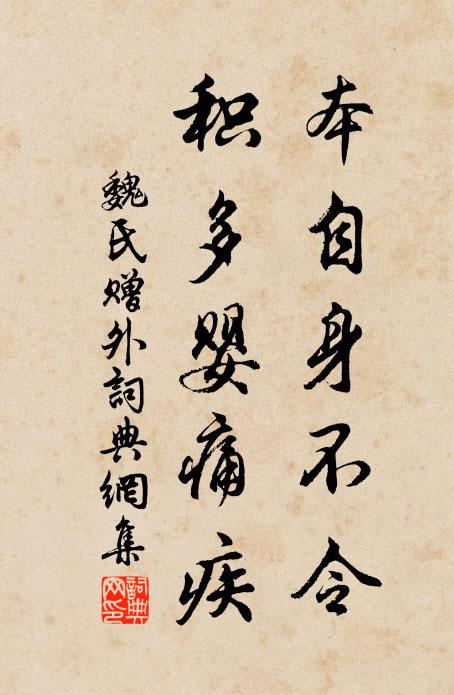 本自身不令
积多婴痛疾
魏氏赠外詞典網集
詞典网印